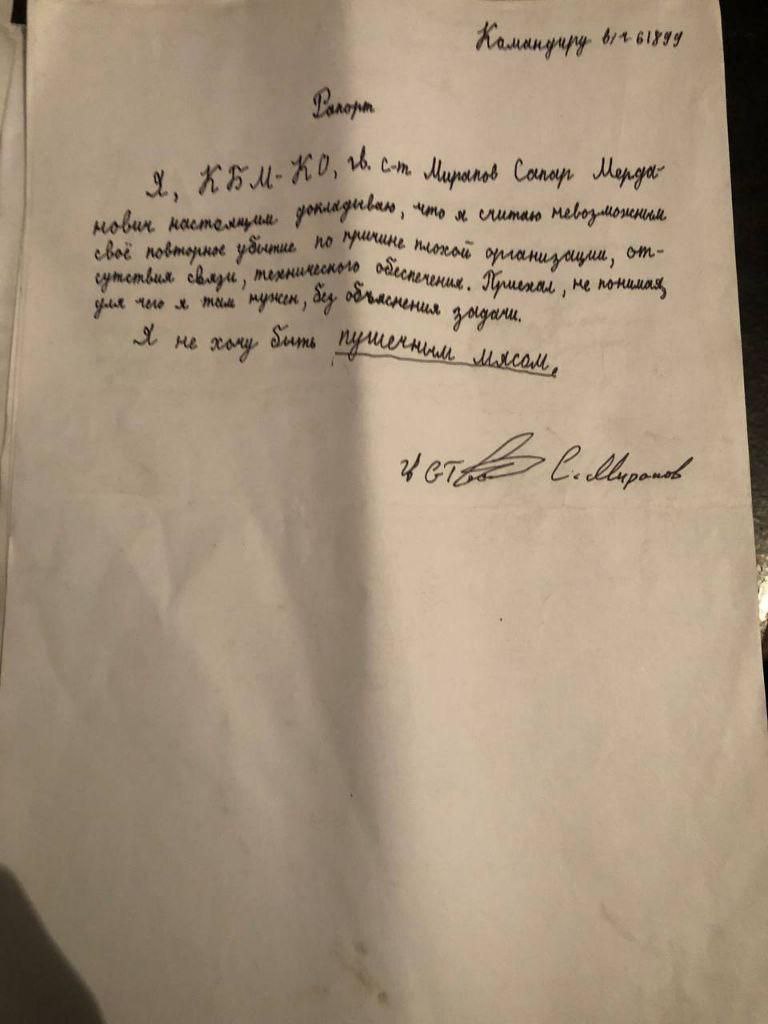 Командиру в/ч 61899
Рапорт
Я, КБМ-КО, гв. с-т Мирапов Сапар Мерда-
нович настоящим докладываю, что я считаю невозможным
своё повторное убытие по причине плохой организации, от-
сутствия связи, технического обеспечения. Приехал, не понимая,
для чего я там нужен, без объяснения задачи.
Я не хочу быть пушечным мясом.
СТ С. Мирапов